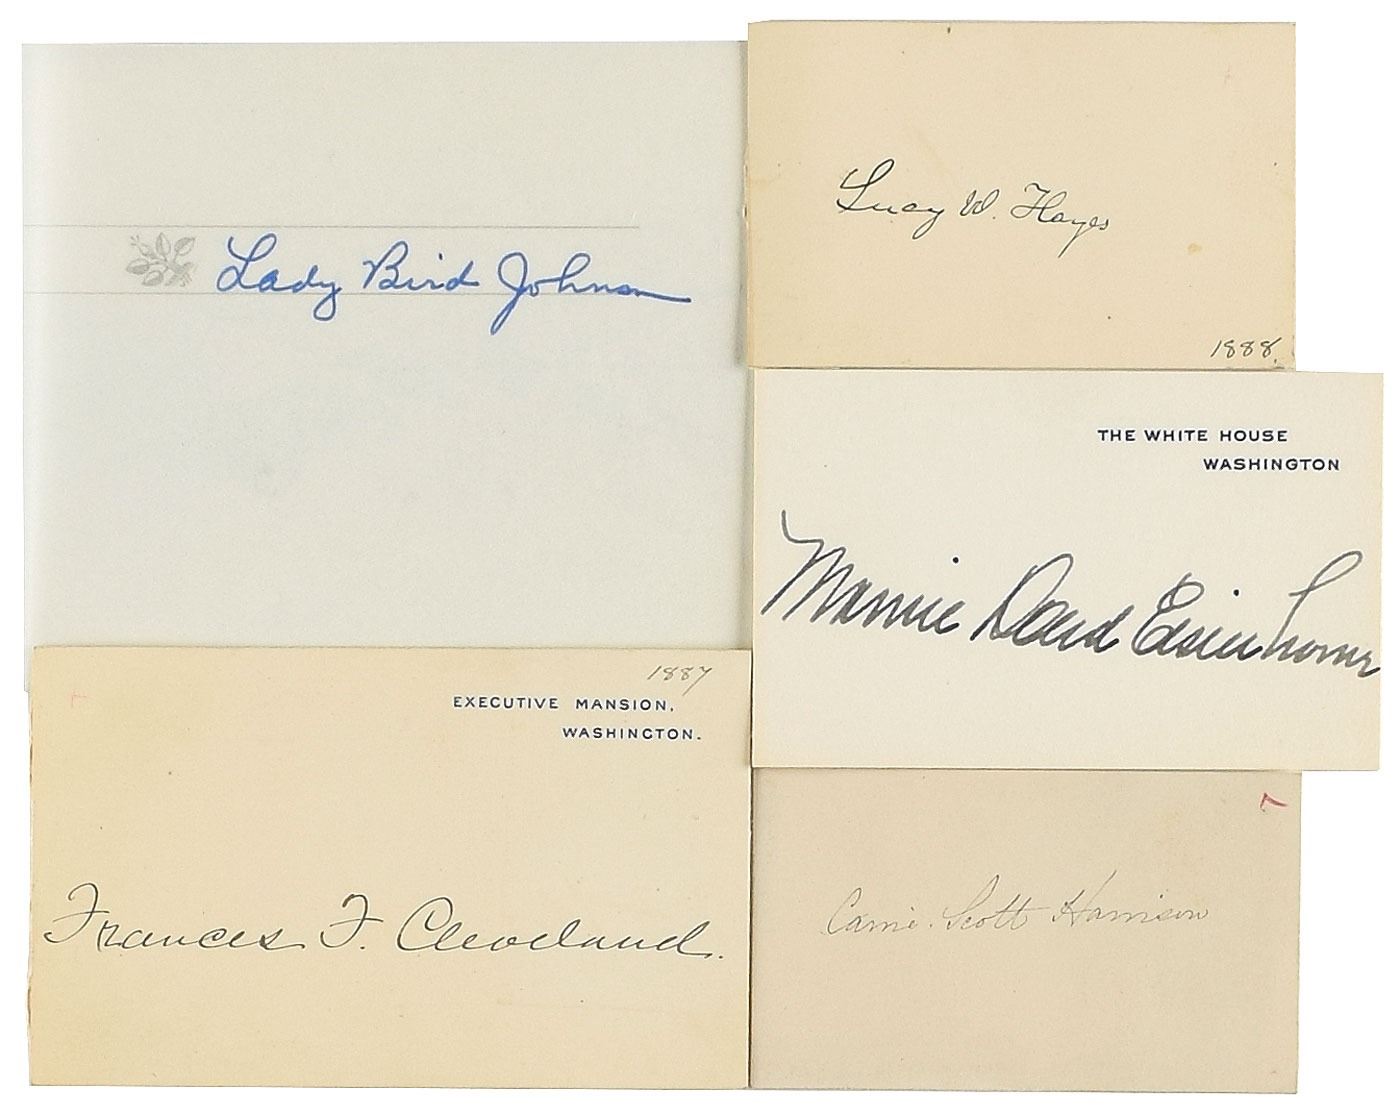 Lady Bird Johnson
Lucy W. Hayes
1888.
THE WHITE HOUSE
WASHINGTON
Mamie Doud Eisenhower
1887
EXECUTIVE MANSION,
WASHINGTON.
Frances F. Cleveland.
Carrie Scott Harrison
7